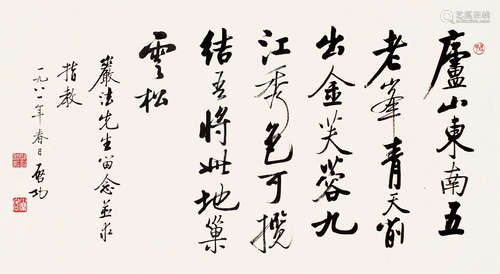 廬山東南五
老峯青天削
出金芙蓉九
江秀色可攬
結吾將此地巢
雲松
嚴法先生留念並求
指教
一九八一年春日 啓功